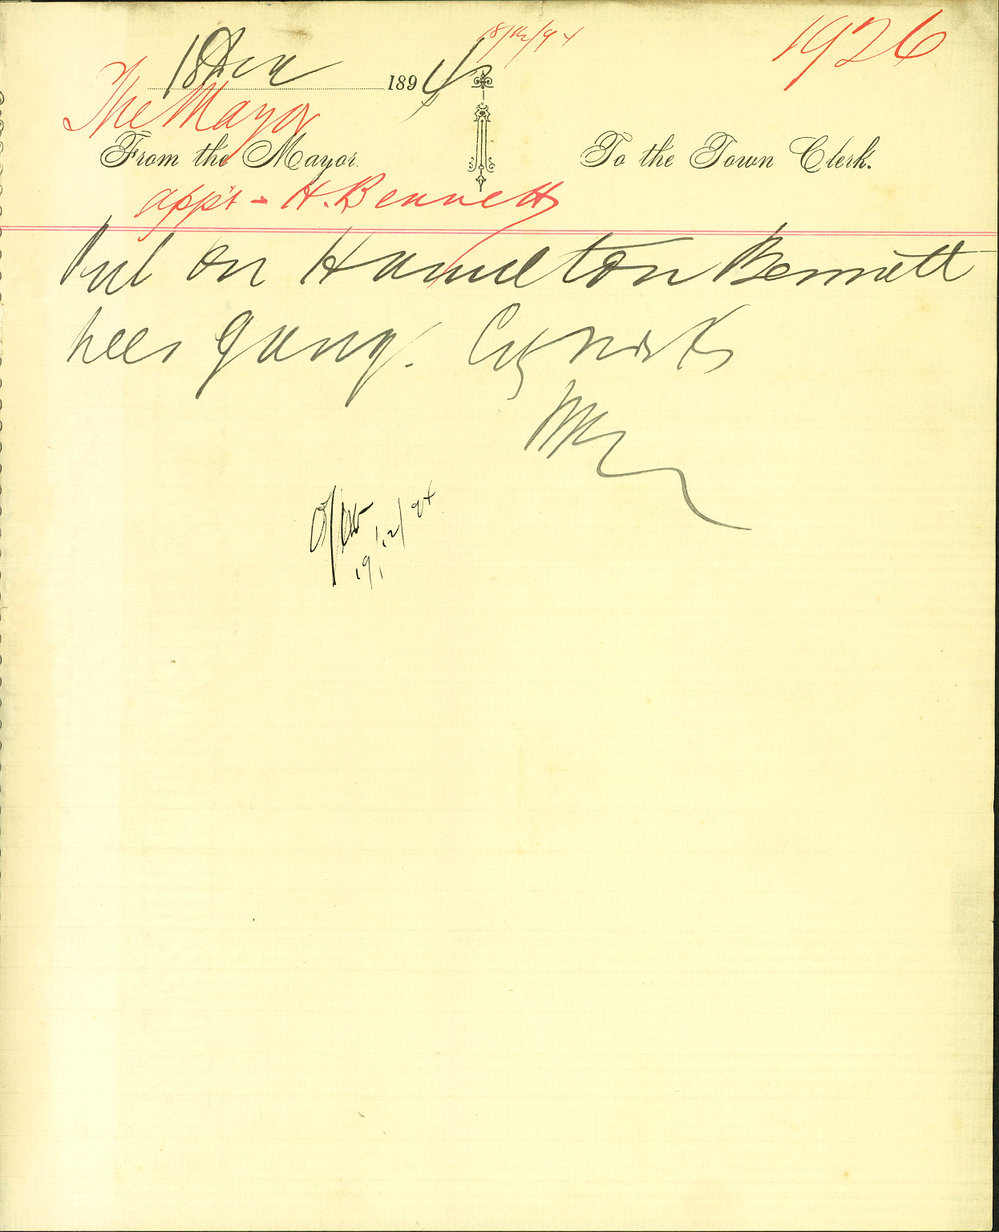 18/12/94
1926
18 Dec 1894
The Mayor
From the Mayor. To the Town Clerk.
appt - H. Bennett
Put on Hamilton Bennett
gang.
19/12/94